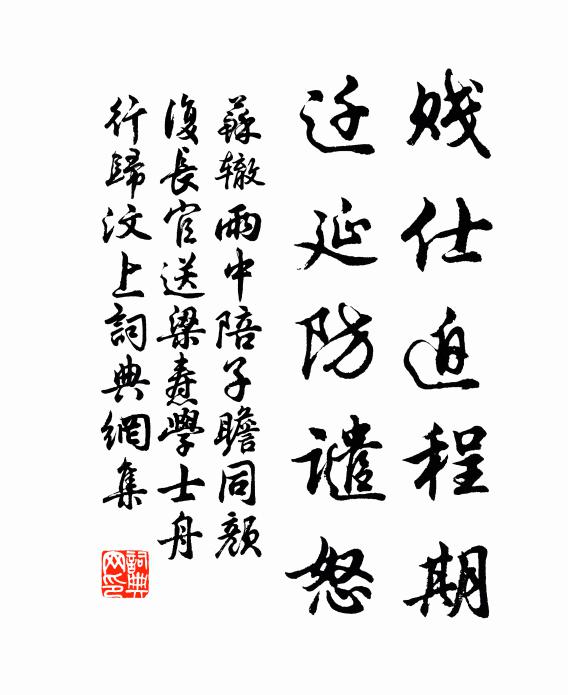 賤仕迫程期
迁延防譴怒
蘇轍雨中陪子瞻同顏
復長官送梁燾學士舟
行歸汶上詞典網集
詞典
网印